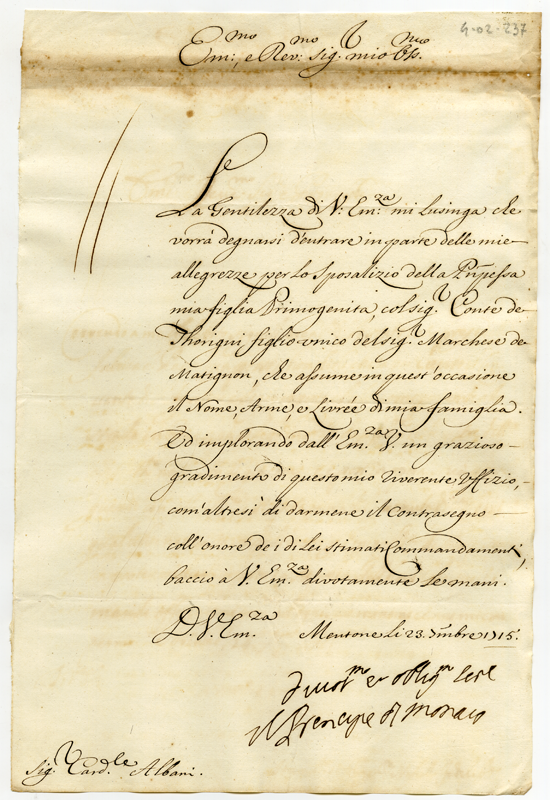 4-02-237
Em.mo, e Rev.mo Sig.r mio Oss.mo
La Gentilezza di V: Em.za mi lusinga che
vorrà degnarsi d'entrare in parte delle mie
allegrezze per lo Sposalizio della Pñpessa
mia figlia Primogenita, col sig.r Conte de
Thorigni figlio unico del sig.r Marchese de
Matignon, che assume in quest'occasione
il Nome, Arme, e Livrée di mia famiglia.
Ed implorando dall'Em.za V. un grazioso
gradimento di questo mio riverente Uffizio,
com'altresì di darmene il Contrasegno
coll'onore de i di Lei stimati Commandamenti,
baccio à V. Em.za divotamente le mani.
D. V. Em.za Mentone li 23. 7mbre 1715.
divot.mo et obblig.mo
il Prencipe di Monaco
Sig.r Card.le Albani.